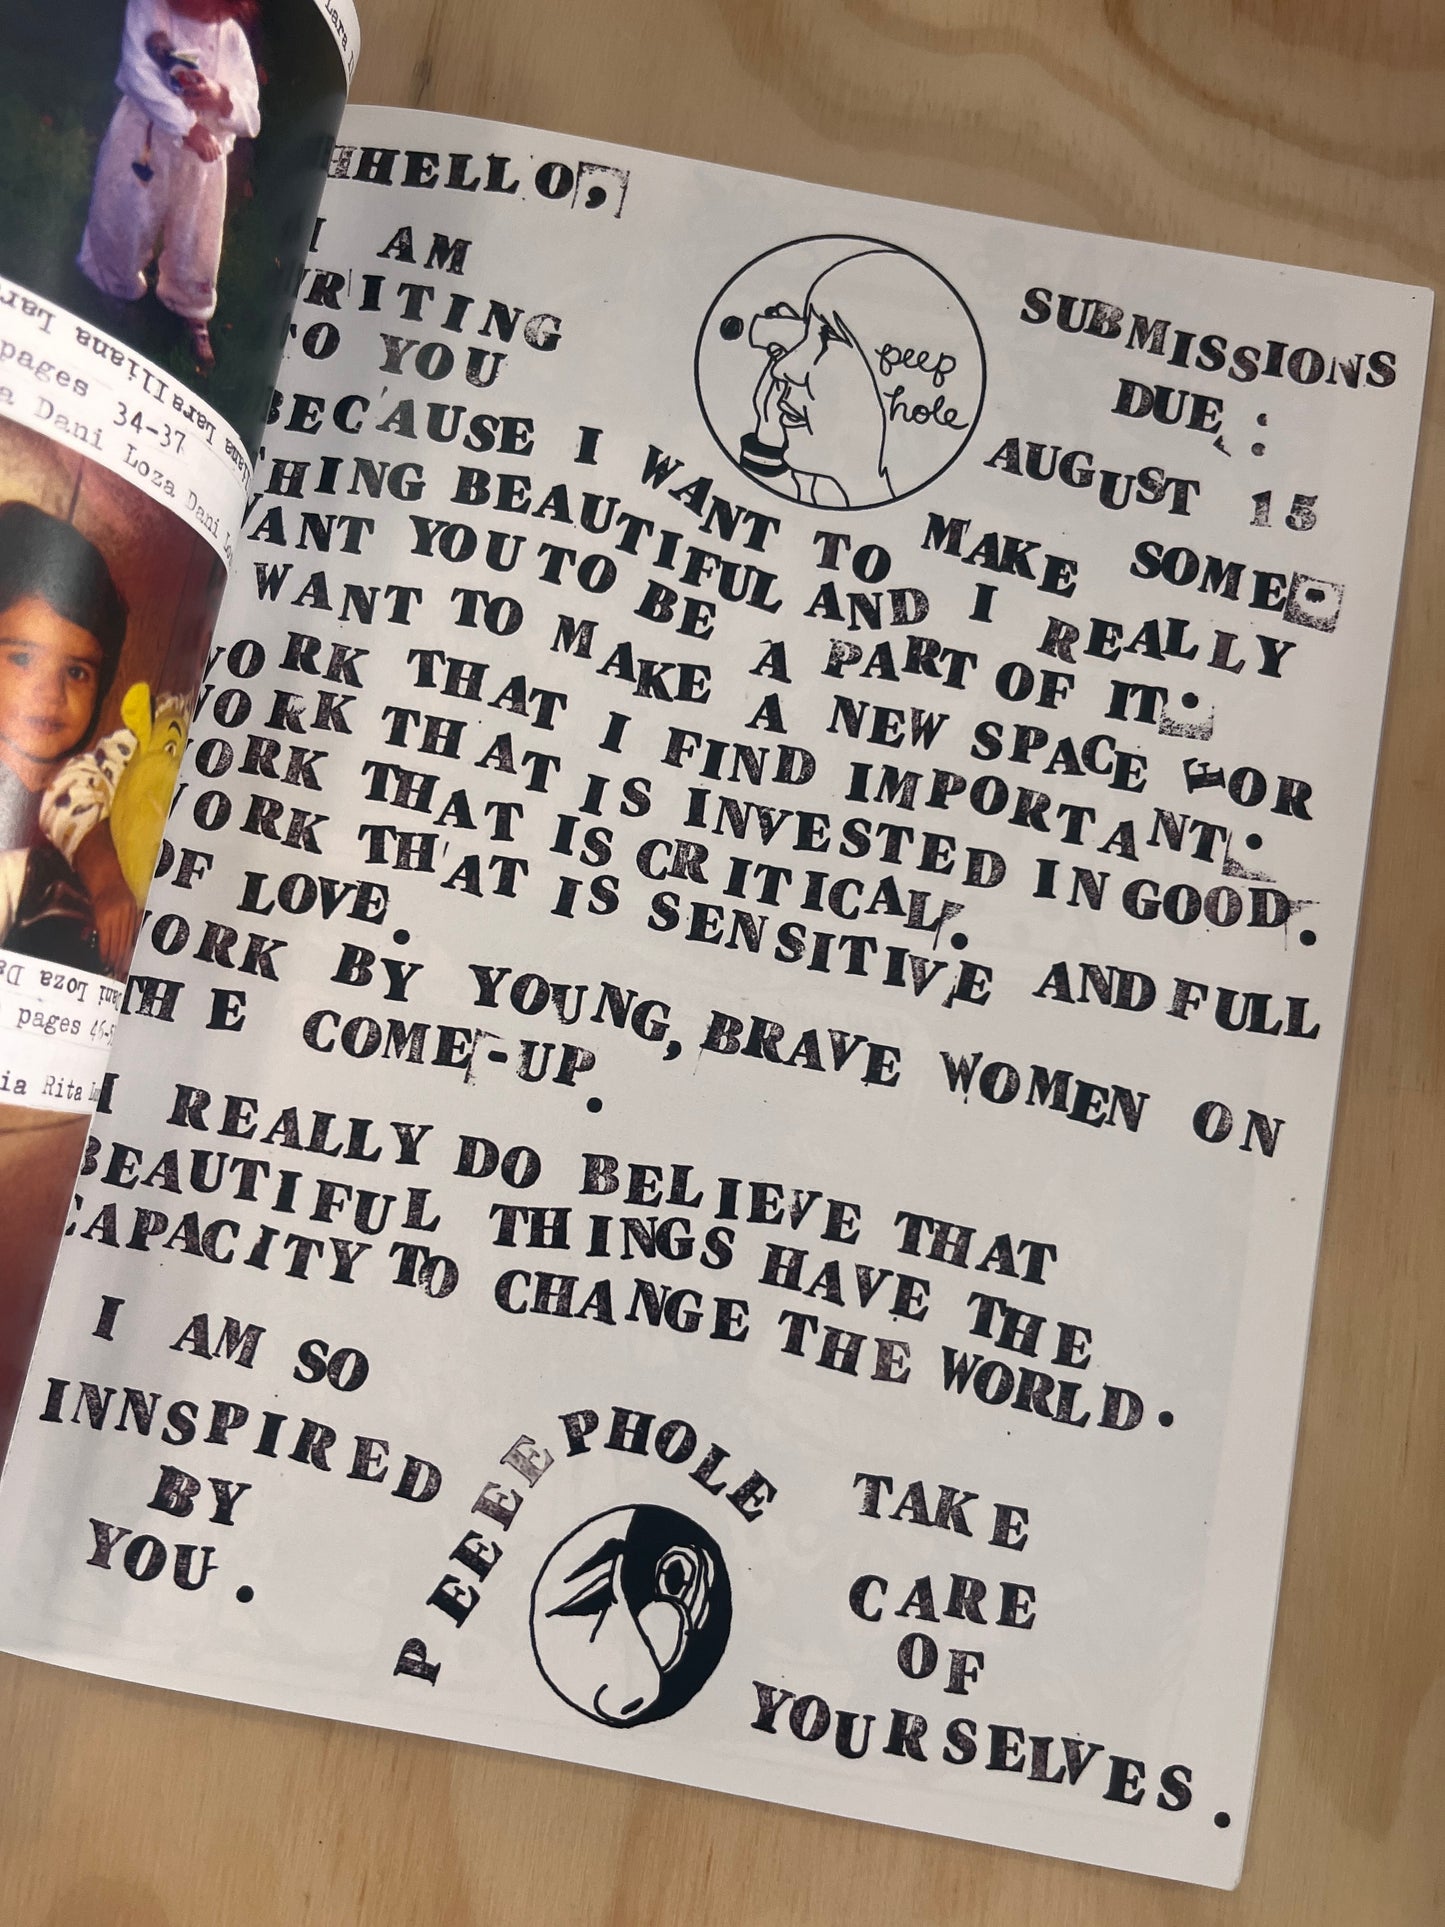 HHELLO,
I AM
WRITING
TO YOU
BECAUSE I WANT TO MAKE SOME
THING BEAUTIFUL AND I REALLY
WANT YOU TO BE A PART OF IT.
I WANT TO MAKE A NEW SPACE FOR
WORK THAT I FIND IMPORTANT.
WORK THAT IS INVESTED IN GOOD.
WORK THAT IS CRITICAL.
WORK THAT IS SENSITIVE AND FULL
OF LOVE.
WORK BY YOUNG, BRAVE WOMEN ON
THE COME-UP.
I REALLY DO BELIEVE THAT
BEAUTIFUL THINGS HAVE THE
CAPACITY TO CHANGE THE WORLD.
I AM SO
INNSPIRED
BY
YOU.
peep
hole
SUBMISSIONS
DUE:
AUGUST 15
PEEEEEPHOLE
TAKE
CARE
OF
YOURSELVES.
Laralliana Lara
pages 34-37
Dani Loza Dani
Dani Loza
pages
Rita